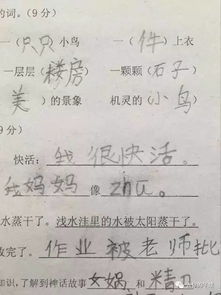 的词。(9分)
一(只只)小鸟 一(件)上衣
一层层(楼房) 一颗颗(石子)
(美)的景象 机灵的(小鸟
9分)
快活:我很快活。
我妈妈像zhū。
水蒸干了。浅水洼里的水被太阳蒸干了。
改完了。作业被老师批
知识,了解到神话故事女娲和精卫